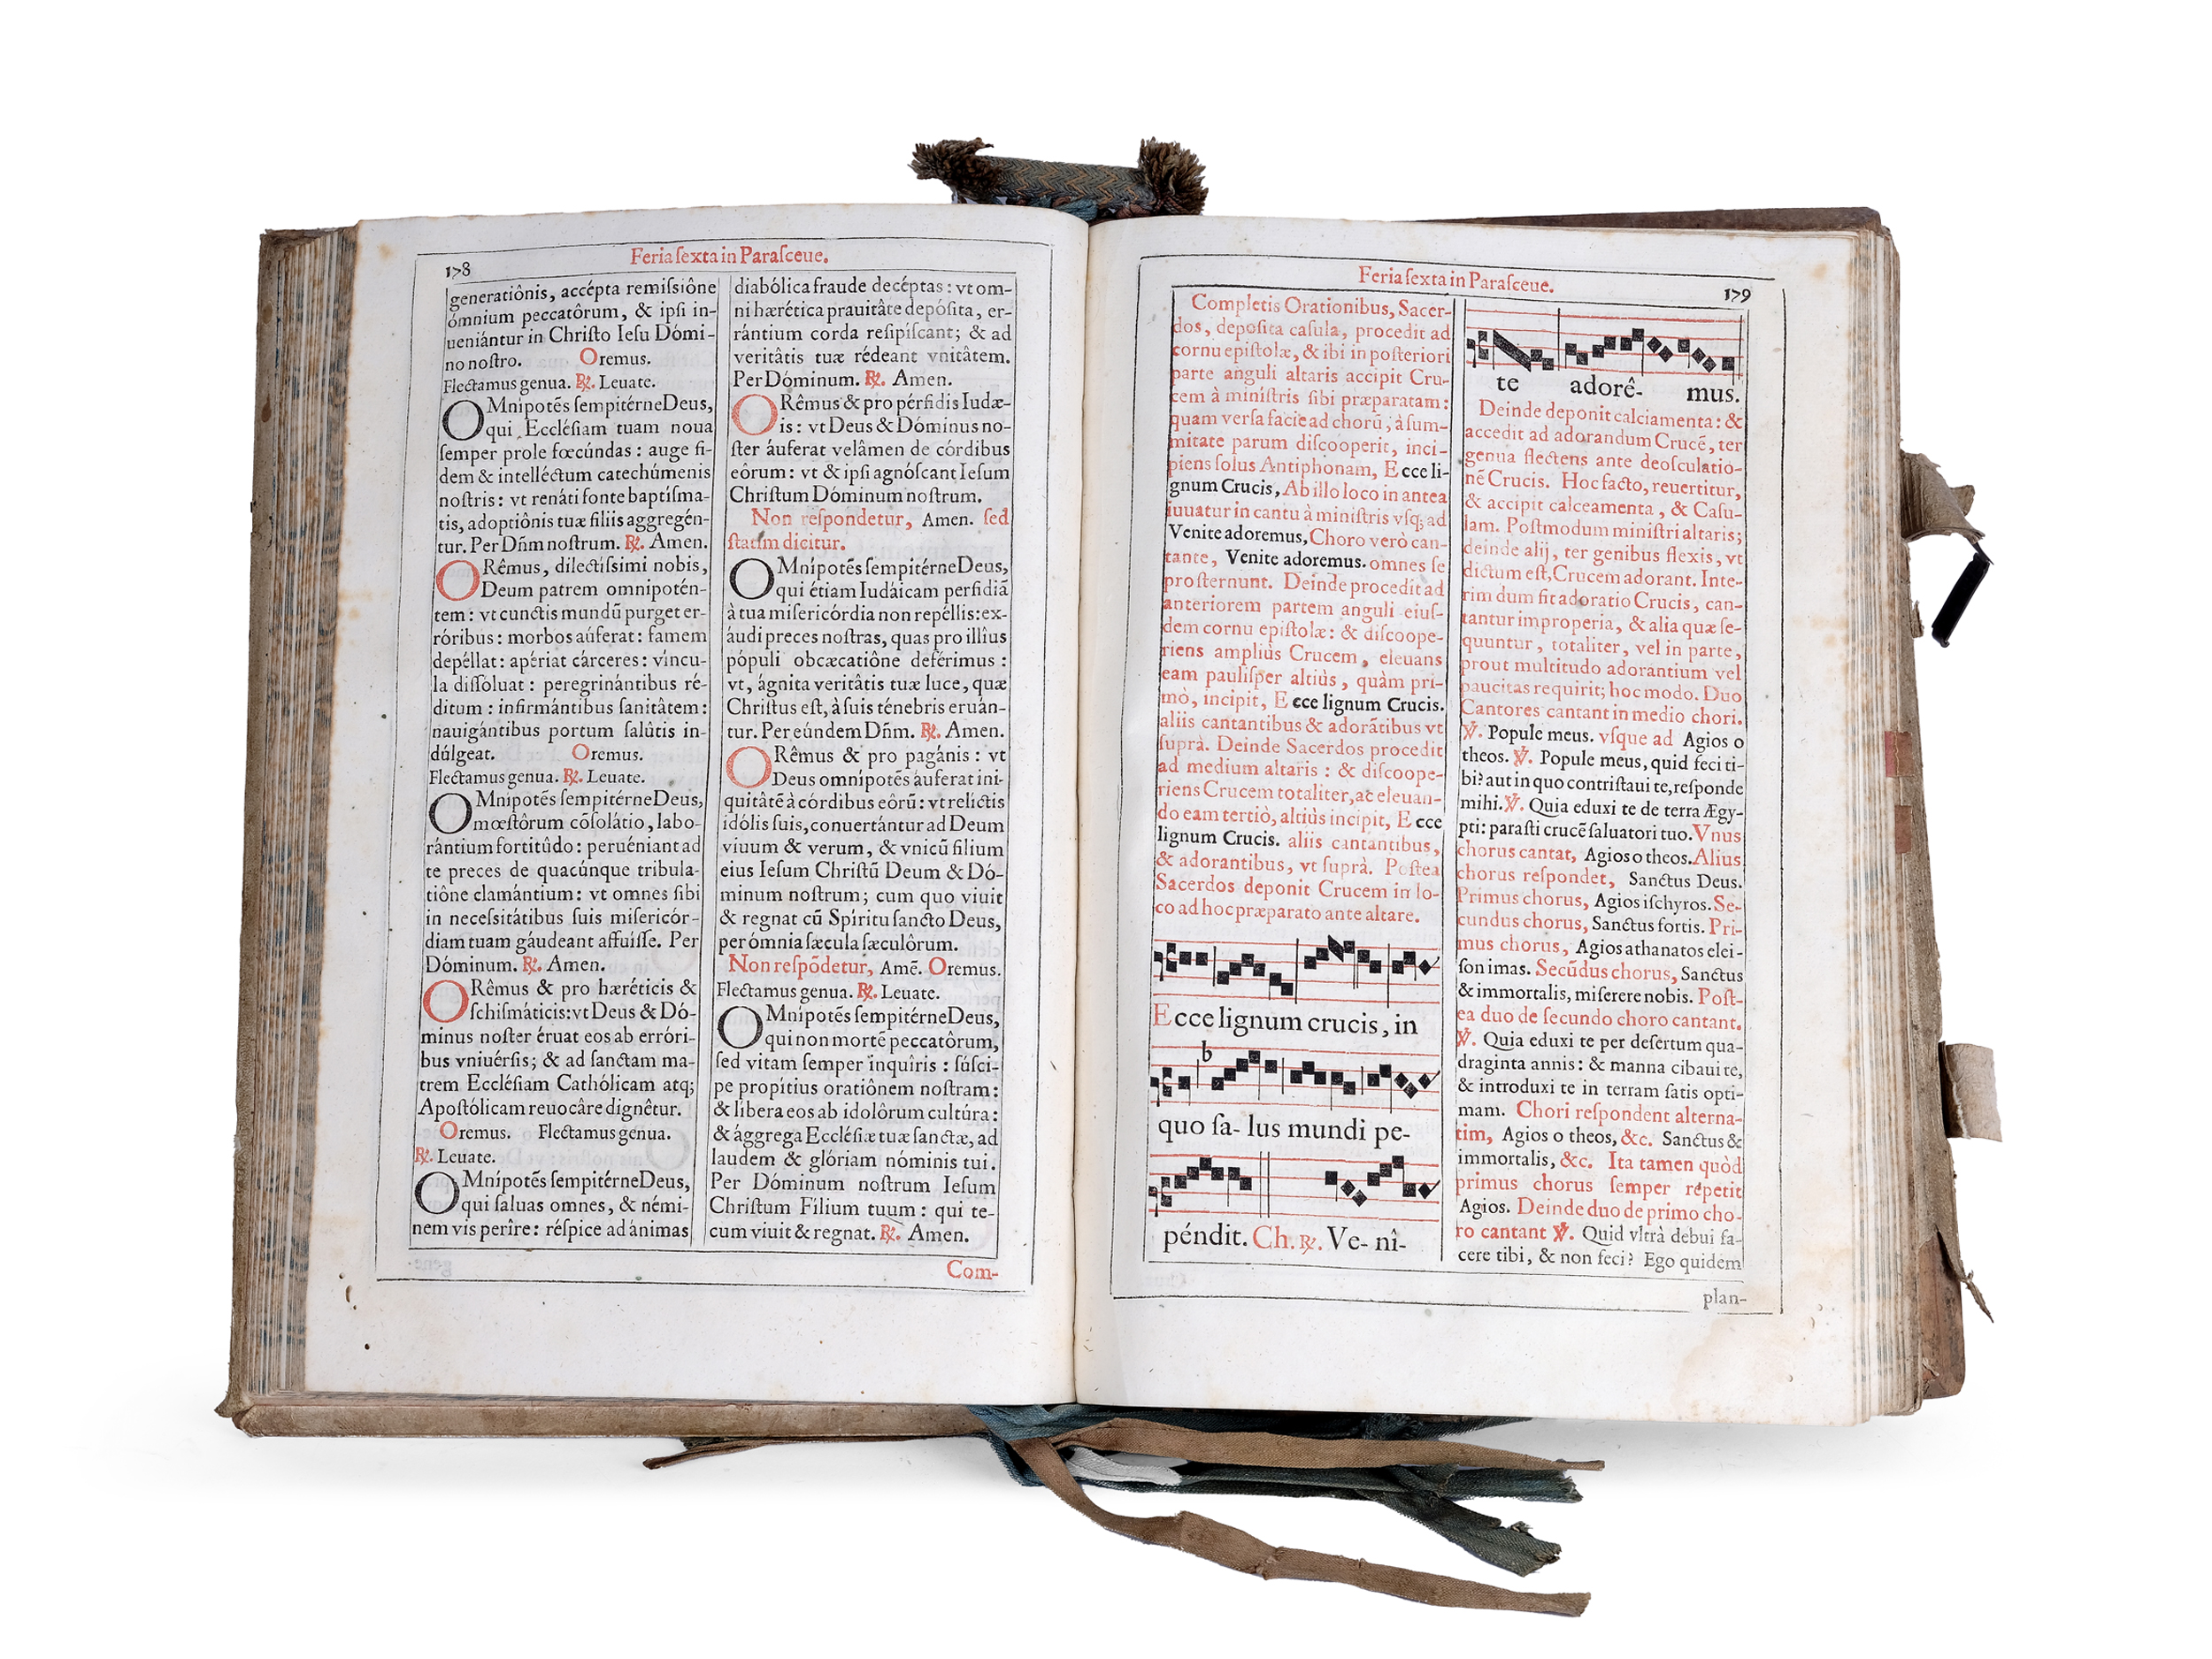 178
Feria ſexta in Paraſceue.
generatiônis, accépta remiſsiône
ómnium peccatôrum, & ipſi in-
ueniántur in Chriſto Ieſu Dómi-
no noſtro. Oremus.
Flectamus genua. ℟. Leuate.
OMnipotẽs ſempitérne Deus,
qui Eccléſiam tuam noua
ſemper prole fœcúndas : auge fi-
dem & intelléctum catechúmenis
noſtris : vt renáti fonte baptiſma-
tis, adoptiônis tuæ filiis aggregén-
tur. Per Dñm noſtrum. ℟. Amen.
ORêmus, dilectíſsimi nobis,
Deum patrem omnipotén-
tem : vt cunctis mundũ purget er-
róribus : morbos áuferat : famem
depéllat : apériat cárceres : víncu-
la diſſoluat : peregrinántibus ré-
ditum : infirmántibus ſanitâtem :
nauigántibus portum ſalûtis in-
dúlgeat. Oremus.
Flectamus genua. ℟. Leuate.
OMnipotẽs ſempitérne Deus,
mœſtôrum cõſolátio, labo-
rántium fortitûdo : peruéniant ad
te preces de quacúnque tribula-
tiône clamántium : vt omnes ſibi
in neceſsitátibus ſuis miſericór-
diam tuam gáudeant affuíſſe. Per
Dóminum. ℟. Amen.
ORêmus & pro hæréticis &
ſchiſmáticis: vt Deus & Dó-
minus noſter éruat eos ab errôri-
bus vniuérſis; & ad ſanctam ma-
trem Eccléſiam Cathólicam atq;
Apoſtólicam reuocâre dignêtur.
Oremus. Flectamus genua.
℟. Leuate.
OMnípotẽs ſempitérne Deus,
qui ſaluas omnes, & némi-
nem vis perîre : réſpice ad ánimas
diabólica fraude decéptas : vt om-
ni hærética prauitâte depóſita, er-
rántium corda reſipíſcant; & ad
veritâtis tuæ rédeant vnitâtem.
Per Dóminum. ℟. Amen.
ORêmus & pro pérfidis Iudæ-
is : vt Deus & Dóminus no-
ſter áuferat velâmen de córdibus
eôrum : vt & ipſi agnóſcant Ieſum
Chriſtum Dóminum noſtrum.
Non reſpondetur, Amen. ſed
ſtatim dicitur.
OMnípotẽs ſempitérne Deus,
qui étiam Iudáicam perfidiã
à tua miſericórdia non repéllis: ex-
áudi preces noſtras, quas pro illîus
pópuli obcæcatiône deférimus :
vt, ágnita veritâtis tuæ luce, quæ
Chriſtus eſt, à ſuis ténebris eruán-
tur. Per eúndem Dñm. ℟. Amen.
ORêmus & pro pagánis : vt
Deus omnípotẽs áuferat ini-
quitâtẽ à córdibus eôrũ : vt relíctis
idólis ſuis, conuertántur ad Deum
viuum & verum, & vnicũ filium
eius Ieſum Chriſtũ Deum & Dó-
minum noſtrum; cum quo viuit
& regnat cũ Spíritu ſancto Deus,
per ómnia ſæcula ſæculôrum.
Non reſpõdetur, Amẽ. Oremus.
Flectamus genua. ℟. Leuate.
OMnípotẽs ſempitérne Deus,
qui non mortẽ peccatôrum,
ſed vitam ſemper inquîris : ſúſci-
pe propítius oratiônem noſtram :
& líbera eos ab idolôrum cultúra :
& ággrega Eccléſiæ tuæ ſanctæ, ad
laudem & glóriam nóminis tui.
Per Dóminum noſtrum Ieſum
Chriſtum Filium tuum : qui te-
cum viuit & regnat. ℟. Amen.
Com-
Feria ſexta in Paraſceue.
179
Completis Orationibus, Sacer-
dos, depoſita caſula, procedit ad
cornu epiſtolæ, & ibi in poſteriori
parte anguli altaris accipit Cru-
cem à miniſtris ſibi præparatam :
quam verſa facie ad chorũ, à ſum-
mitate parum diſcooperit, inci-
piens ſolus Antiphonam, Ecce li-
gnum Crucis, Ab illo loco in antea
iuuatur in cantu à miniſtris vſq; ad
Venite adoremus, Choro verò can-
tante, Venite adoremus. omnes ſe
proſternunt. Deinde procedit ad
anteriorem partem anguli eiuſ-
dem cornu epiſtolæ : & diſcoope-
riens ampliùs Crucem, eleuans
eam pauliſper altiùs, quàm pri-
mò, incipit, Ecce lignum Crucis.
aliis cantantibus & adorãtibus vt
ſuprà. Deinde Sacerdos procedit
ad medium altaris : & diſcoope-
riens Crucem totaliter, ac eleuan-
do eam tertiò, altiùs incipit, Ecce
lignum Crucis. aliis cantantibus,
& adorantibus, vt ſuprà. Poſtea
Sacerdos deponit Crucem in lo-
co ad hoc præparato ante altare.
Ecce lignum crucis, in
b
quo ſa- lus mundi pe-
péndit. Ch. ℟. Ve- nî-
te adorê- mus.
Deinde deponit calciamenta : &
accedit ad adorandum Crucẽ, ter
genua flectens ante deoſculatio-
nẽ Crucis. Hoc facto, reuertitur,
& accipit calceamenta, & Caſu-
lam. Poſtmodum miniſtri altaris;
deinde alij, ter genibus flexis, vt
dictum eſt, Crucem adorant. Inte-
rim dum fit adoratio Crucis, can-
tantur improperia, & alia quæ ſe-
quuntur, totaliter, vel in parte,
prout multitudo adorantium vel
paucitas requirit; hoc modo. Duo
Cantores cantant in medio chori.
℣. Popule meus. vſque ad Agios o
theos. ℣. Popule meus, quid feci ti-
bi? aut in quo contriſtaui te, reſponde
mihi. ℣. Quia eduxi te de terra Ægy-
pti : paraſti crucẽ ſaluatori tuo. Vnus
chorus cantat, Agios o theos. Alius
chorus reſpondet, Sanctus Deus.
Primus chorus, Agios iſchyros. Se-
cundus chorus, Sanctus fortis. Pri-
mus chorus, Agios athanatos elei-
ſon imas. Secũdus chorus, Sanctus
& immortalis, miſerere nobis. Poſt-
ea duo de ſecundo choro cantant.
℣. Quia eduxi te per deſertum qua-
draginta annis : & manna cibaui te,
& introduxi te in terram ſatis opti-
mam. Chori reſpondent alterna-
tim, Agios o theos, &c. Sanctus &
immortalis, &c. Ita tamen quòd
primus chorus ſemper répetit
Agios. Deinde duo de primo cho-
ro cantant ℣. Quid vltrà debui fa-
cere tibi, & non feci? Ego quidem
plan-